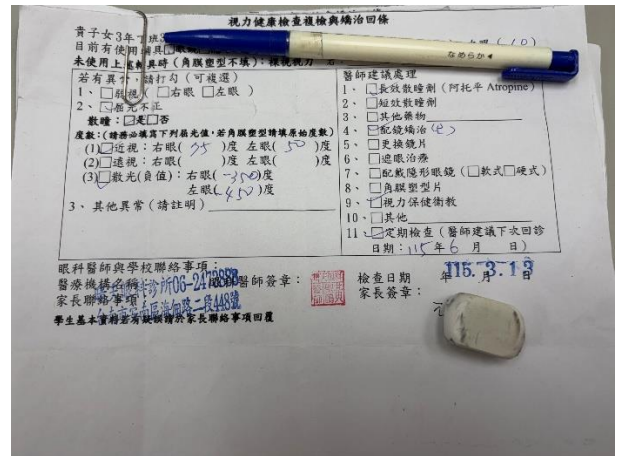 視力健康檢查複檢與矯治回條
貴子女3年丁班
目前有使用輔具
なめらか
未使用上述輔具時(角膜塑型不填):裸視視力
若有異常,請打勾(可複選)
1、□弱視(□右眼 □左眼)
2、☑屈光不正
散瞳:☑是□否
度數:(請務必填寫下列屈光值,若角膜塑型請填原始度數)
(1)☑近視:右眼( 75 )度 左眼( 50 )度
(2)□遠視:右眼( )度 左眼( )度
(3)☑散光(負值):右眼( -350 )度
左眼( -450 )度
3、其他異常(請註明)
醫師建議處理
1、□長效散瞳劑(阿托平 Atropine)
2、□短效散瞳劑
3、□其他藥物
4、☑配鏡矯治
5、□更換鏡片
6、□遮眼治療
7、□配戴隱形眼鏡(□軟式□硬式)
8、□角膜塑型片
9、☑視力保健衛教
10、□其他
11、☑定期檢查(醫師建議下次回診
日期:115年 6 月 日)
眼科醫師與學校聯絡事項:
醫療機構名稱:眼科診所06-2472888 醫師簽章:
檢查日期 年 月 日
115. 3. 13
家長聯絡事項:
台南市安南區海佃路二段448號
家長簽章:
學生基本資料若有疑誤請於家長聯絡事項回覆